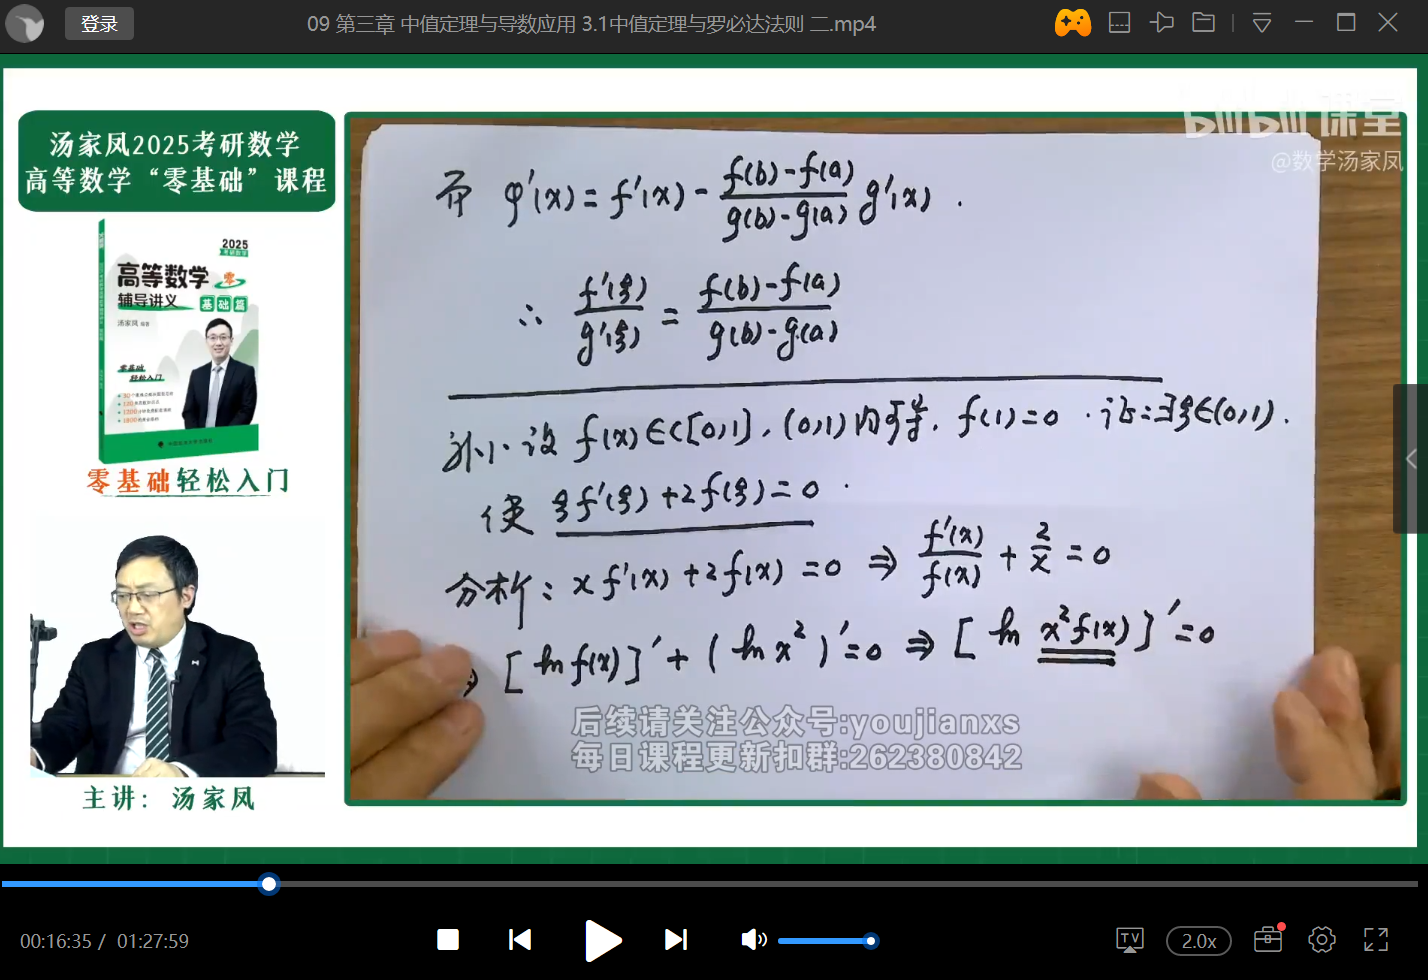 登录
09 第三章 中值定理与导数应用 3.1中值定理与罗必达法则 二.mp4
汤家凤2025考研数学
高等数学“零基础”课程
2025
高等数学 零
辅导讲义 基础篇
汤家凤 编著
零基础
轻松入门
零基础轻松入门
主讲：汤家凤
bilibili课堂
@数学汤家凤
而 φ'(x) = f'(x) - \frac{f(b)-f(a)}{g(b)-g(a)} g'(x) .
∴ \frac{f'(ξ)}{g'(ξ)} = \frac{f(b)-f(a)}{g(b)-g(a)}
例1. 设 f(x)∈C[0,1], (0,1)内可导, f(1)=0 . 证:∃ξ∈(0,1).
使 ξf'(ξ)+2f(ξ)=0 .
分析: xf'(x)+2f(x)=0 ⇒ \frac{f'(x)}{f(x)} + \frac{2}{x} = 0
⇒ [ln f(x)]' + (ln x²)'=0 ⇒ [ln x²f(x)]'=0
后续请关注公众号:youjianxs
每日课程更新扣群:262380842
00:16:35 / 01:27:59
TV
2.0x